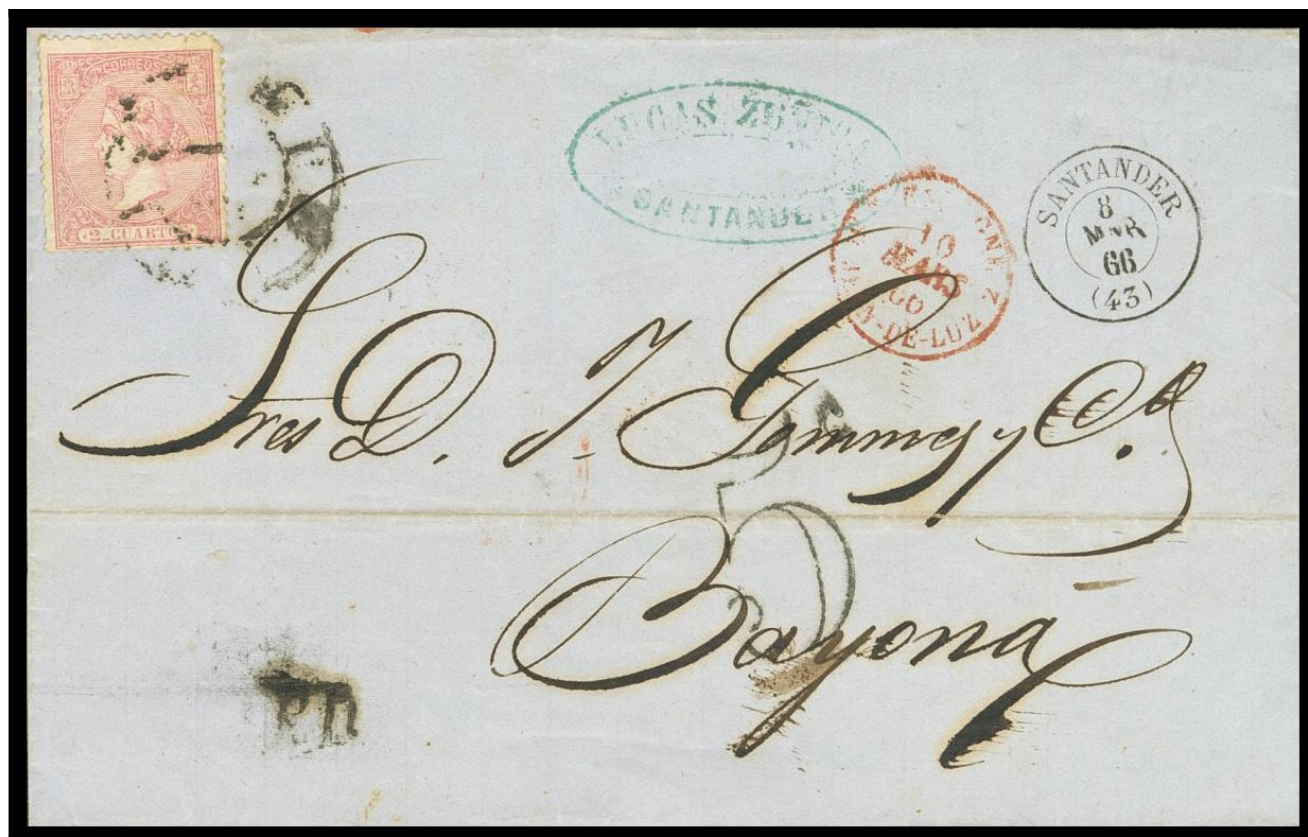 CORREOS
2 CUARTOS
LUCAS
SANTANDER
10
MARS
DE-LUZ
SANTANDER
8
MAR
66
(43)
Sres D. J. Gommes y Cª
Bayona